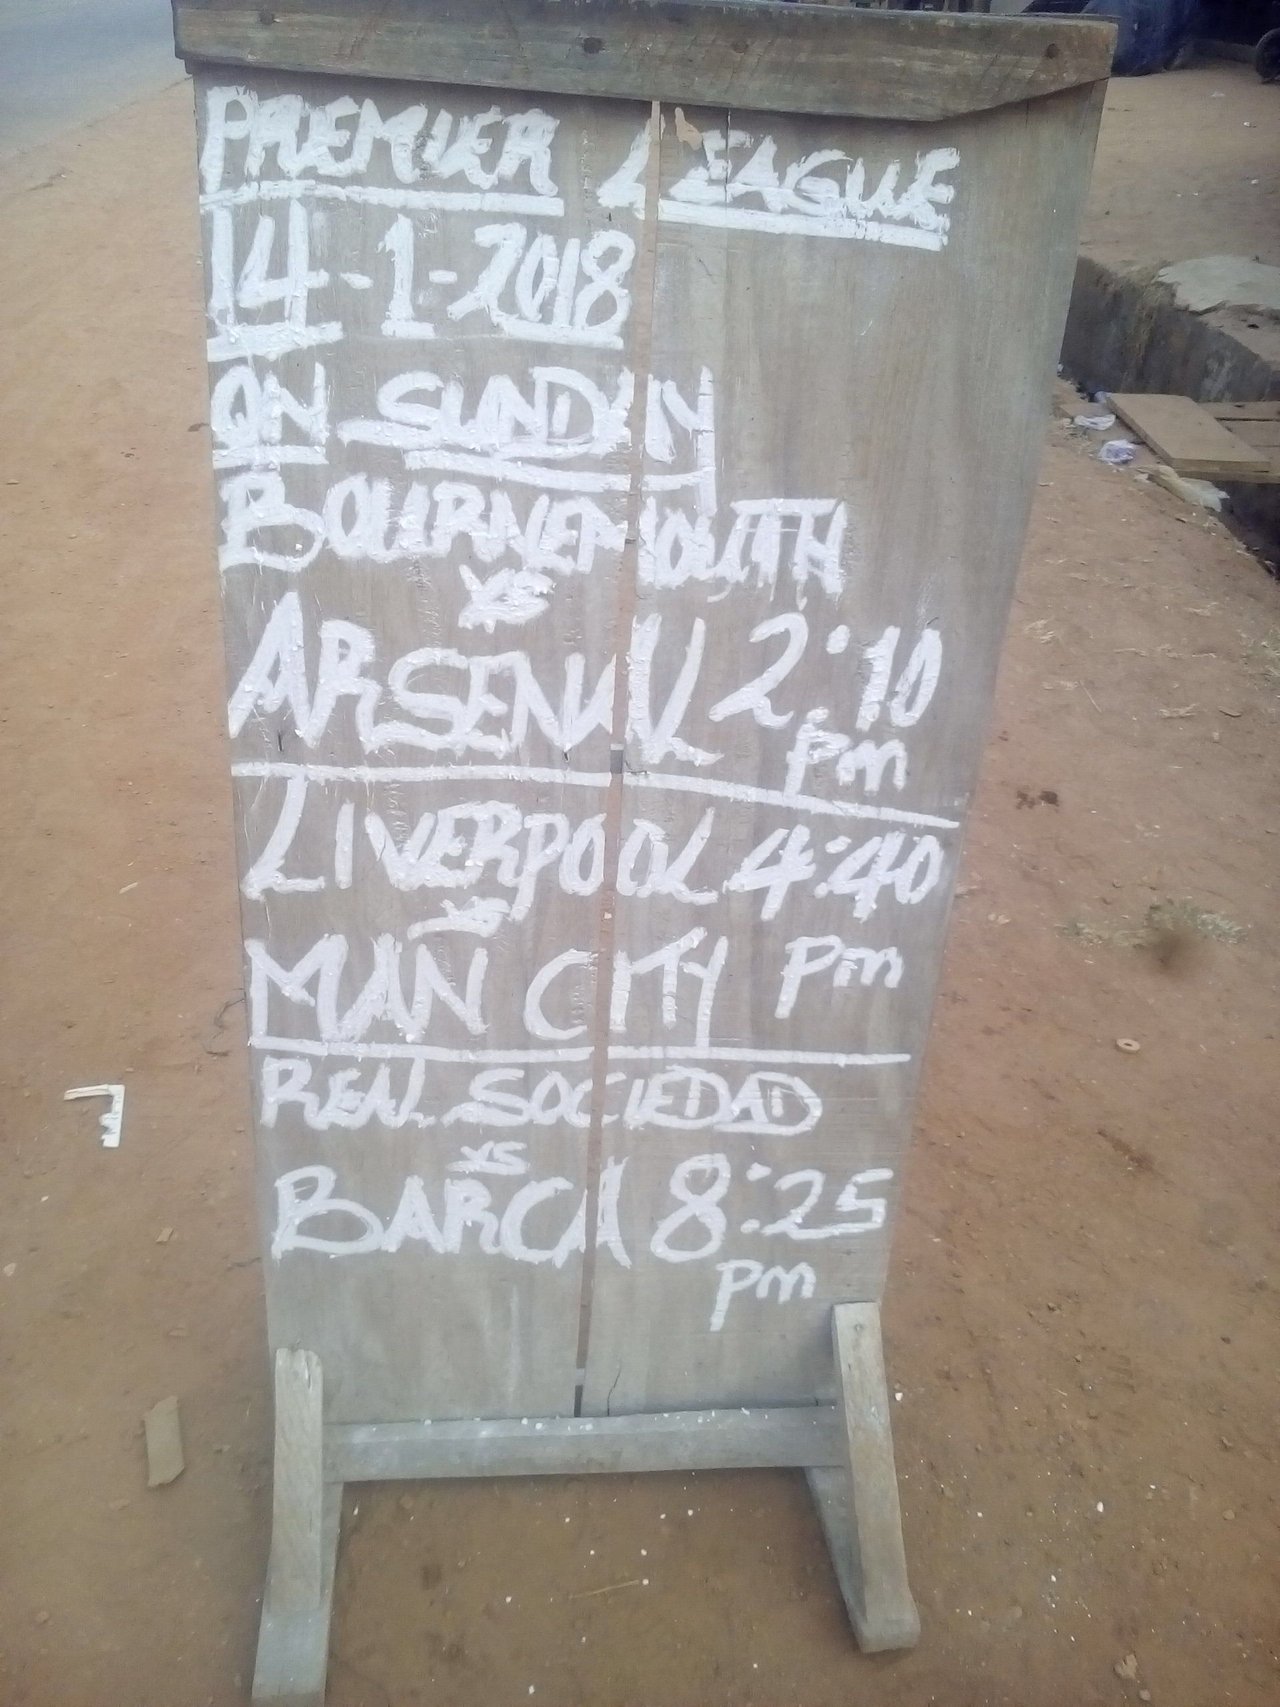 PREMIER LEAGUE
14-1-2018
ON SUNDAY
BOURNEMOUTH
VS
ARSENAL 2:10
pm
LIVERPOOL 4:40
VS
MAN CITY pm
REAL SOCIEDAD
VS
BARCA 8:25
pm